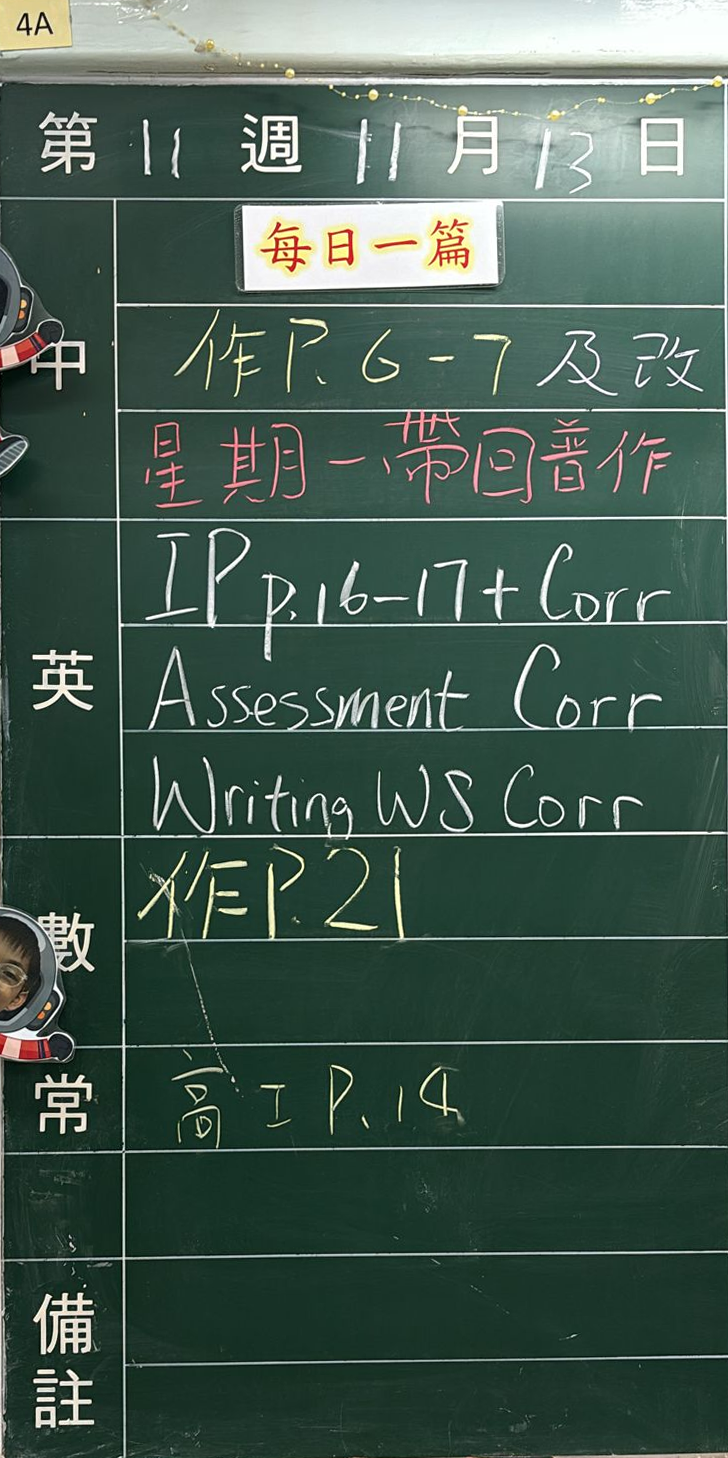 4A
第 11 週 11 月 13 日
每日一篇
中
作P. 6-7 及改
星期一、帶回普作
英
IP p.16-17 + Corr
Assessment Corr
Writing WS Corr
數
作P.21
常
高I P.14
備註